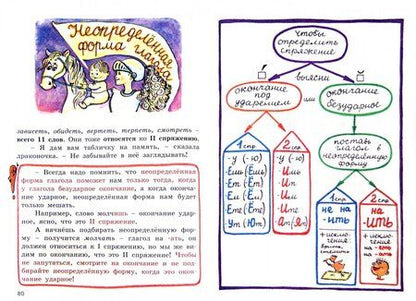 Неопределённая
форма
глагола
зависеть, обидеть, вертеть, терпеть, смотреть —
всего 11 слов. Они тоже относятся ко II спряжению.
— Я дам вам табличку на память, — сказала
драконочка. — Не забывайте в неё заглядывать!
— Всегда надо помнить, что неопределённая
форма глагола помогает нам только тогда, когда
у глагола безударное окончание, а когда оконча-
ние ударное, неопределённая форма нам будет
только мешать.
Например, слово молчать — окончание удар-
ное, ясно, что это II спряжение.
А начнёшь подбирать неопределённую фор-
му — получится молчать — глагол на -ать, он
должен относиться к I спряжению, но мы же ви-
дим по окончанию, что это II спряжение! Чтобы
не запутаться, смотрите на окончание и не под-
бирайте неопределённую форму, когда это окон-
чание ударное!
80
чтобы
определить
спряжение
выясни
окончание
под
ударением
или
окончание
безударное
поставь
глагол в
неопределённую
форму
1 спр.
-у (-ю)
-Ешь (Ёшь)
-Ет (Ёт)
-Ем (Ём)
-Ете (Ёте)
-Ут (Ют)
2 спр.
-у (-ю)
-Ишь
-Ит
-Им
-Ите
-Ат (Ят)
1 спр
не на
-ИТЬ
+ исклю-
чения:
брить,
стелить
2 спр
на
-ИТЬ
+ исклю-
чения:
на -еть
на -ать